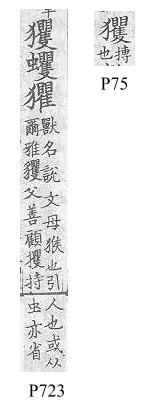 玃蠼
獸名說文母猴也引
爾雅玃父善顧攫持
人也或从
虫亦省
P723
玃
搏
也
P75